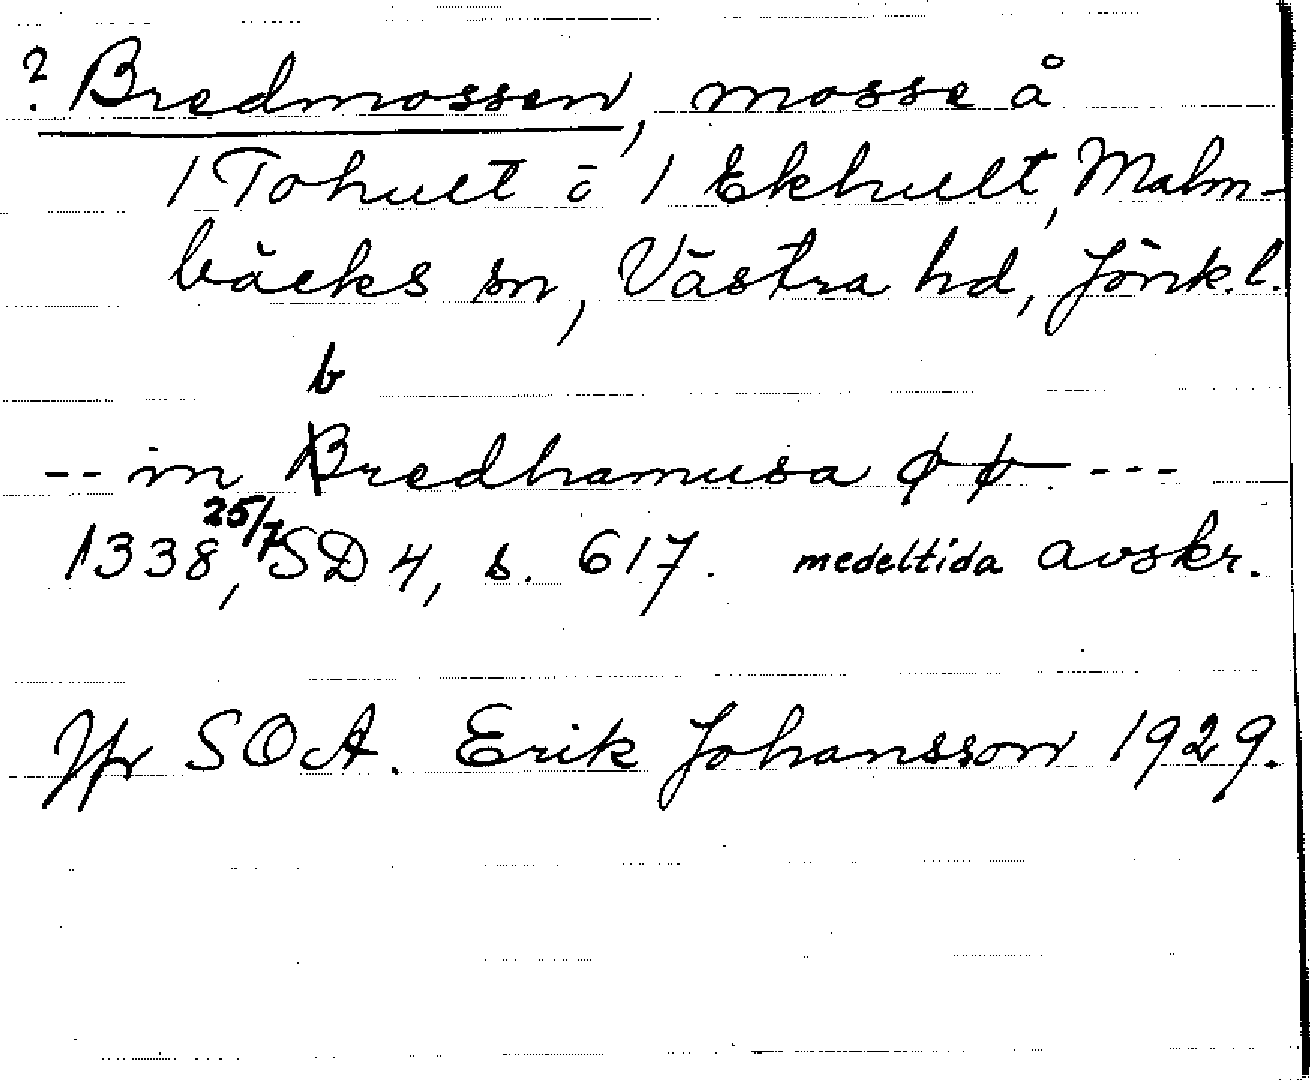 ? Bredmossen, mosse å
1 Tohult o 1 Ekhult, Malm-
bäcks sn, Västra hd, Jönk.l.
b
-- in Bredhamusa ---
1338, 25/7 SD 4, s. 617. medeltida avskr.
Jfr SOÄ. Erik Johansson 1929.